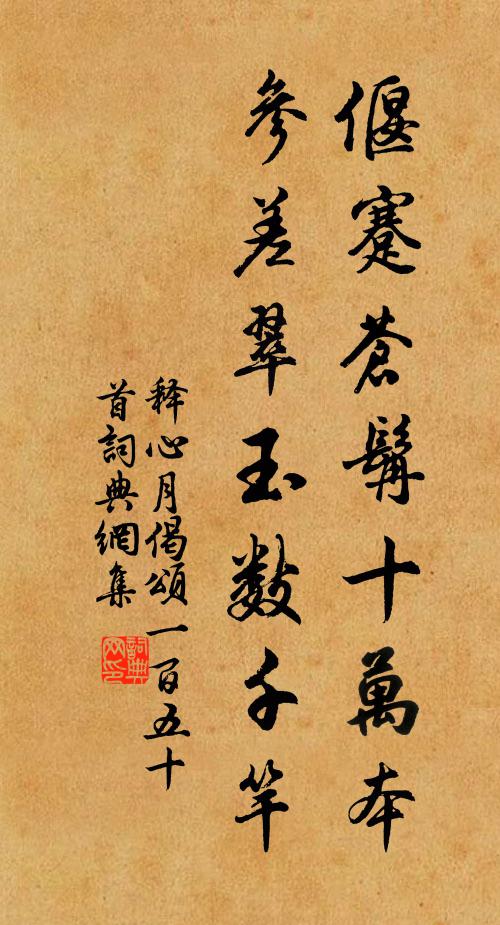 偃蹇蒼髯十萬本
參差翠玉数千竿
释心月偈頌一百五十
首詞典網集
詞典网印